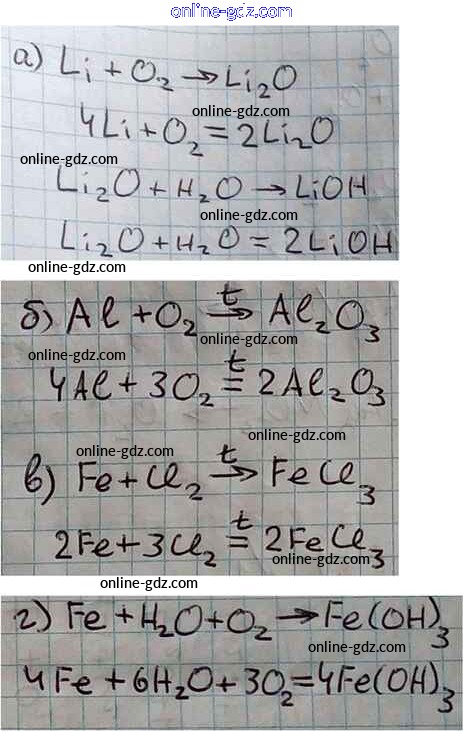 online-gdz.com
а) Li + O₂ → Li₂O
online-gdz.com
4Li + O₂ = 2Li₂O
online-gdz.com
Li₂O + H₂O → LiOH
online-gdz.com
Li₂O + H₂O = 2LiOH
online-gdz.com
б) Al + O₂ t→ Al₂O₃
online-gdz.com
online-gdz.com
4Al + 3O₂ t= 2Al₂O₃
online-gdz.com
online-gdz.com
в) Fe + Cl₂ t→ FeCl₃
2Fe + 3Cl₂ t= 2FeCl₃
online-gdz.com
online-gdz.com
г) Fe + H₂O + O₂ → Fe(OH)₃
online-gdz.com
4Fe + 6H₂O + 3O₂ = 4Fe(OH)₃